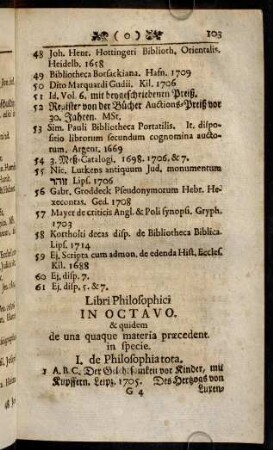 ( o ) 103
48 Joh. Henr. Hottingeri Biblioth, Orientalis.
Heidelb. 1658
49 Bibliotheca Borsackiana. Hafn. 1709
50 Dito Marquardi Gudii. Kil. 1706
51 Id. Vol. 6. mit beygeschriebenen Preiß.
52 Register von der Bücher Auctions-Preiß vor
30. Jahren. MSt.
53 Sim. Pauli Bibliotheca Portatilis. It. dispo-
sitio librorum secundum cognomina auctorum, Argent. 1669
54 3. Meß-Catalogi. 1698. 1706, & 7.
55 Nic. Lutkens antiquum Jud. monumentum
זוהר Lips. 1706
56 Gabr. Groddeck Pseudonymorum Hebr. He-
xecontas. Ged. 1708
57 Mayer de criticis Angl. & Poli synopsi. Gryph.
1703
58 Kortholti decas disp. de Bibliotheca Biblica.
Lips. 1714
59 Ej, Scripta cum admon. de edenda Hist. Eccles.
Kil. 1688
60 Ej. disp. 7.
61 Ej, disp. 5. & 7.
Libri Philosophici
IN OCTAVO.
& quidem
de una quaque materia præcedent.
in specie.
I. de Philosophia tota.
1 A. B. C. Der Gelehrsamkeit vor Kinder, mit
Kupffern. Leipz. 1705. Des Hertzogs von
G 4 Luxen-